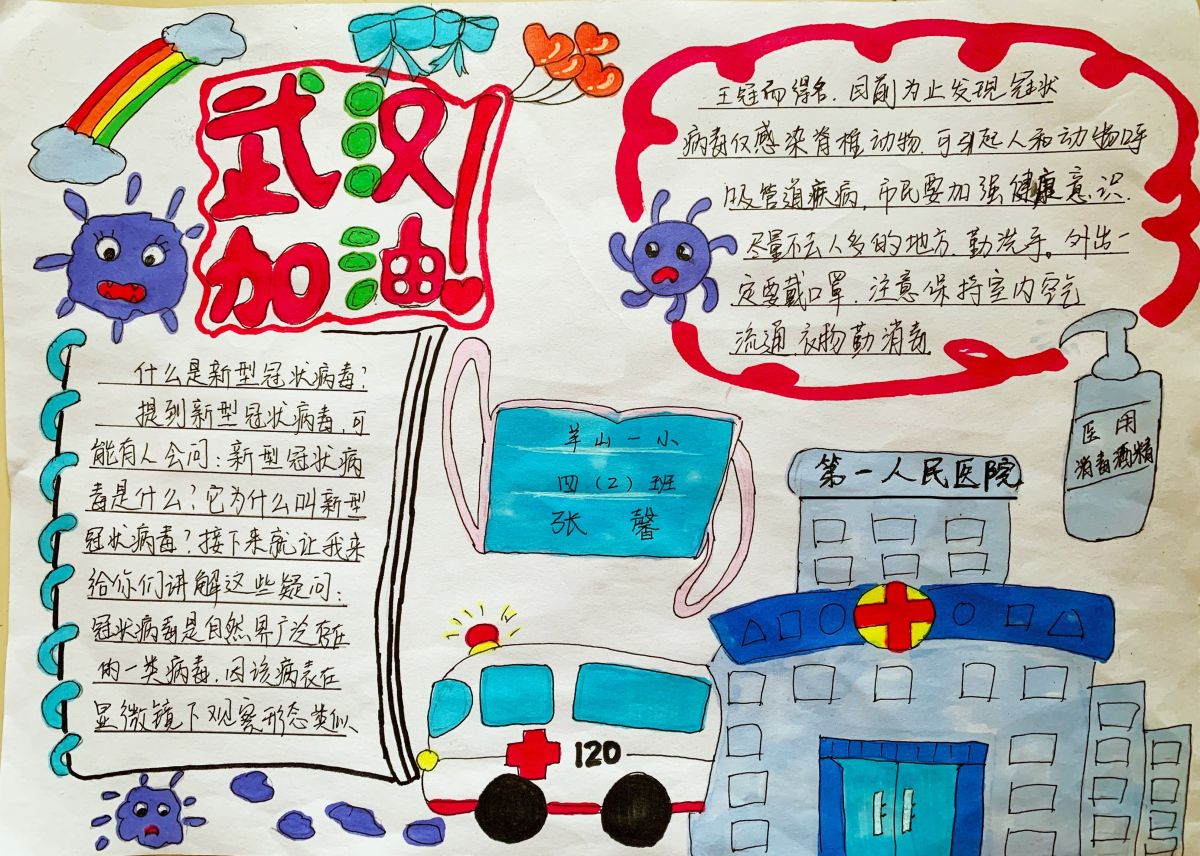 武汉
加油!
什么是新型冠状病毒?
提到新型冠状病毒,可
能有人会问:新型冠状病
毒是什么?它为什么叫新型
冠状病毒?接下来就让我来
给你们讲解这些疑问:
冠状病毒是自然界广泛存在
的一类病毒,因该病表在
显微镜下观察形态类似、
王冠而得名,目前为止发现冠状
病毒仅感染脊椎动物,可引起人和动物呼
吸管道疾病,市民要加强健康意识.
尽量不去人多的地方,勤洗手。外出一
定要戴口罩,注意保持室内空气
流通,衣物勤消毒
羊山一小
四(2)班
张 馨
医用
消毒酒精
第一人民医院
120